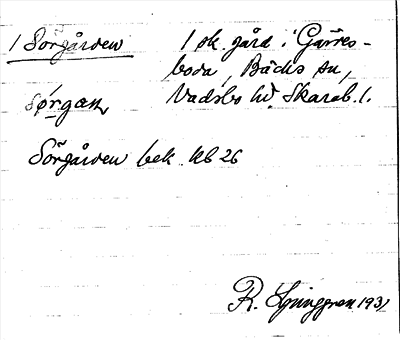 1 Sörgården
1 sk. gård i Garres-
boda, Bäcks sn,
Vadsbo hd, Skarab. l.
sørgan
Sörgården bek. Kb 26
R. Ljunggren 1931